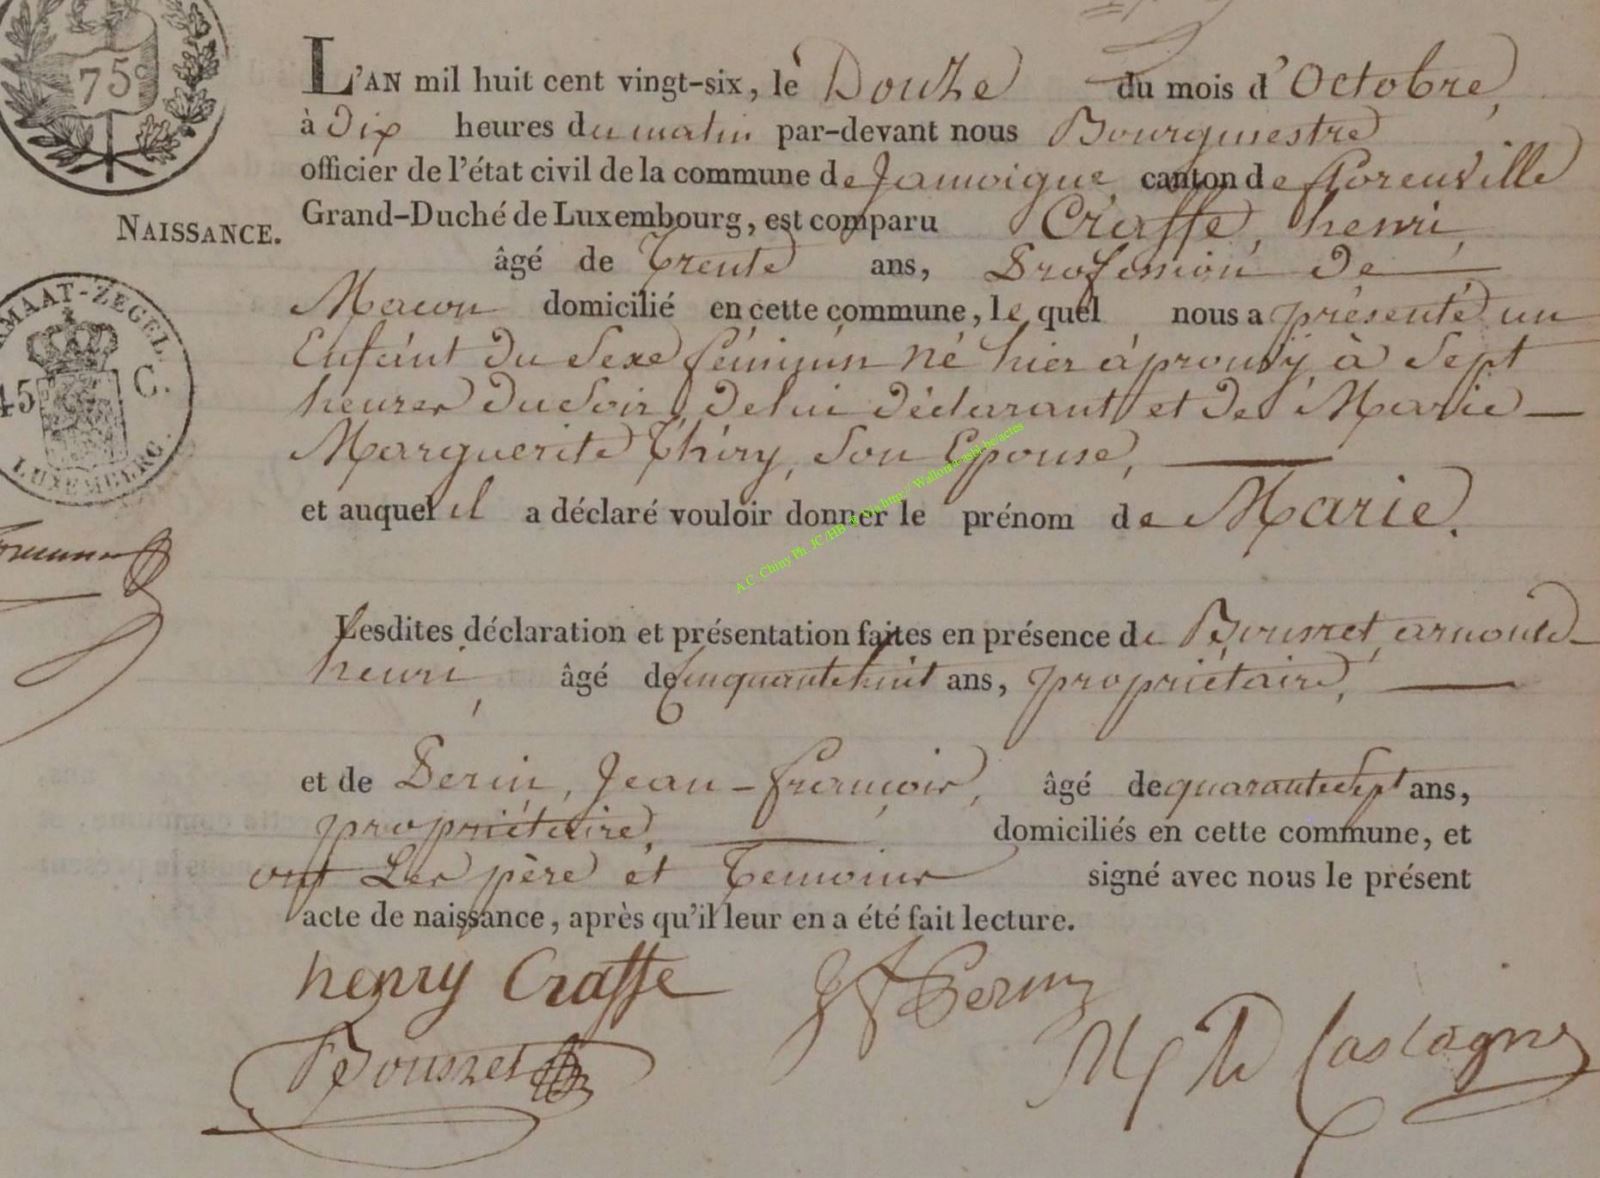 75 c
L'AN mil huit cent vingt-six, le Douze du mois d'Octobre,
à dix heures du matin par-devant nous Bourgmestre
officier de l'état civil de la commune de Jamoigne canton de florenville
NAISSANCE.
Grand-Duché de Luxembourg, est comparu Craffe, henri,
âgé de Trente ans, Profession de
Macon domicilié en cette commune, le quel nous a présenté un
MAAT-ZEGEL.
45 C.
LUXEMBERG.
Enfant du Sexe féminin né hier à prouvy, à Sept
heures du Soir, de lui déclarant et de Marie
Marguerite Thiry, Son Epouse,
et auquel il a déclaré vouloir donner le prénom de Marie.
A.C. Chiny Ph. JC/HB
Lesdites déclaration et présentation faites en présence de Bousret, arnould
henri, âgé de cinquante huit ans, propriétaire,
et de Perin, Jean-françois, âgé de quarante Sept ans,
propriétaire, domiciliés en cette commune, et
ont Les père et Temoins signé avec nous le présent
acte de naissance, après qu'il leur en a été fait lecture.
henry Craffe
JF Perin
Bousret
Castagne